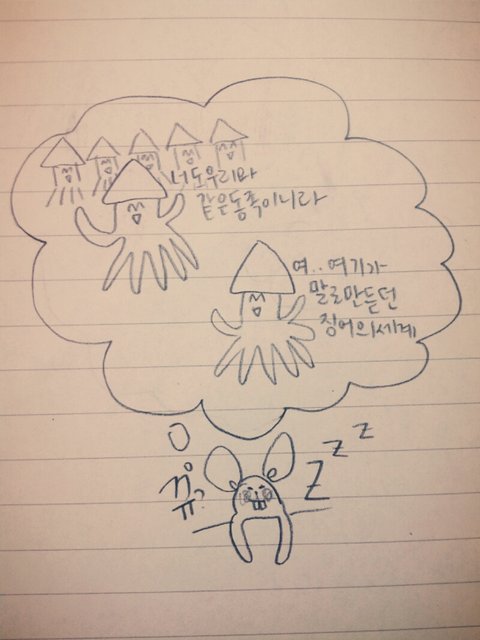 너도우리와
같은동족이니라
여..여기가
말로만듣던
징어의세계
z
z
Z